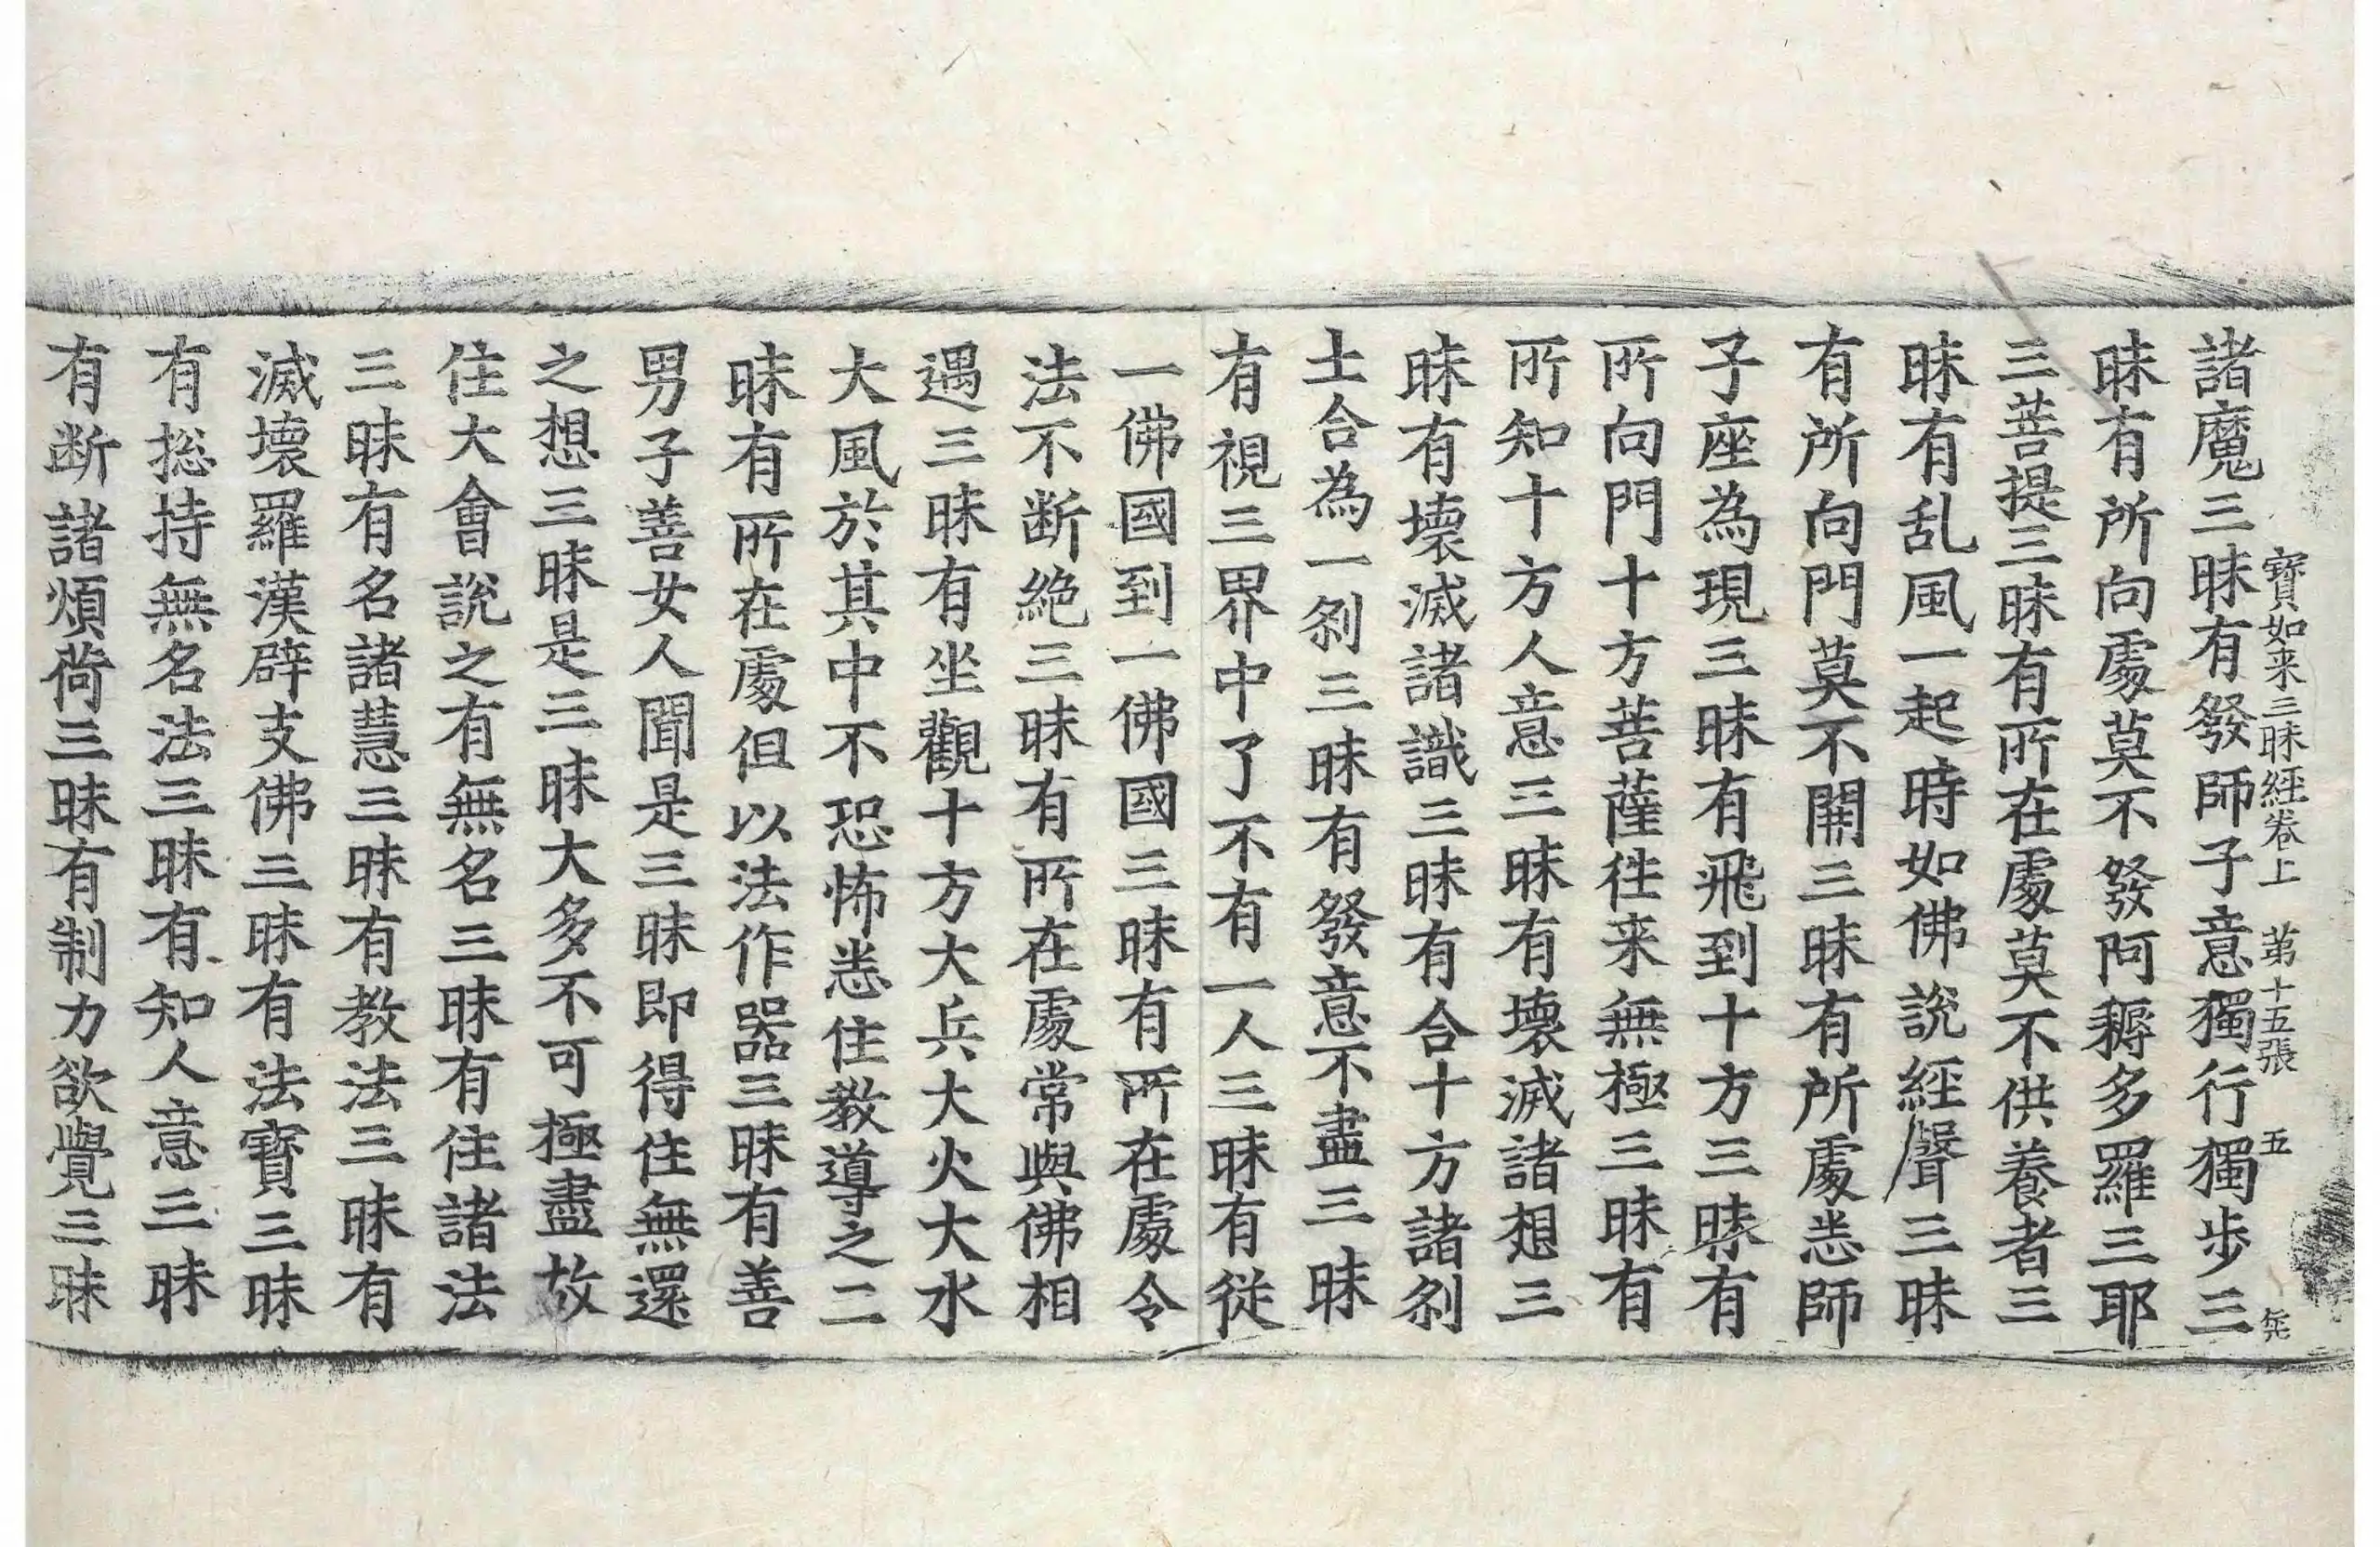 寶如来三昧經卷上 第十五張 五
諸魔三昧有發師子意獨行獨步三
昧有所向處莫不發阿耨多羅三耶
三菩提三昧有所在處莫不供養者三
昧有乱風一起時如佛說經聲三昧
有所向門莫不開三昧有所處悉師
子座為現三昧有飛到十方三昧有
所向門十方菩薩往来無極三昧有
所知十方人意三昧有壞滅諸想三
昧有壞滅諸識三昧有合十方諸刹
土合為一刹三昧有發意不盡三昧
有視三界中了不有一人三昧有從
一佛國到一佛國三昧有所在處令
法不断絶三昧有所在處常與佛相
遇三昧有坐觀十方大兵大火大水
大風於其中不恐怖悉住教導之二
昧有所在處但以法作器三昧有善
男子善女人聞是三昧即得住無還
之想三昧是三昧大多不可極盡故
住大會說之有無名三昧有住諸法
三昧有名諸慧三昧有教法三昧有
滅壞羅漢辟支佛三昧有法寶三昧
有捴持無名法三昧有知人意三昧
有断諸煩荷三昧有制力欲覺三昧